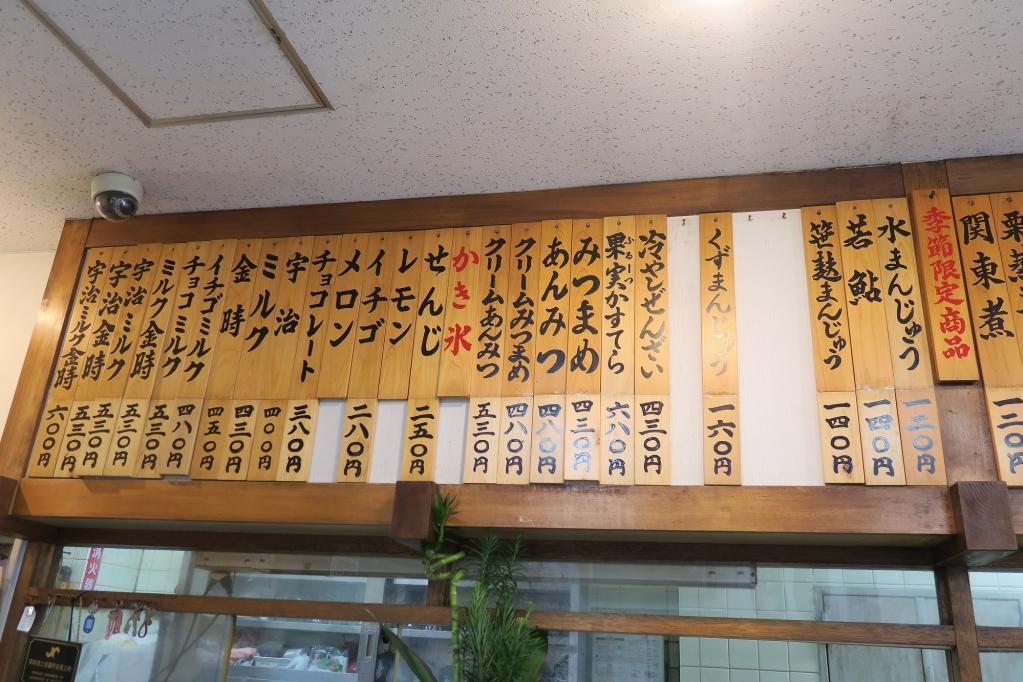 栗蒸
関東煮
季節限定商品
水まんじゅう 一二〇円
若鮎 一四〇円
笹麩まんじゅう 一四〇円
くずまんじゅう 一六〇円
冷やしぜんざい 四三〇円
ふるーつ
果実かすてら 六八〇円
みつまめ 四三〇円
あんみつ 四八〇円
クリームみつまめ 四八〇円
クリームあんみつ 五三〇円
かき氷
せんじ 二五〇円
レモン
イチゴ
メロン 二八〇円
チョコレート 三八〇円
宇治 四〇〇円
ミルク 四三〇円
金時 四五〇円
イチゴミルク 四八〇円
チョコミルク 五三〇円
ミルク金時 五三〇円
宇治ミルク 五三〇円
宇治金時 五三〇円
宇治ミルク金時 六〇〇円
消火器